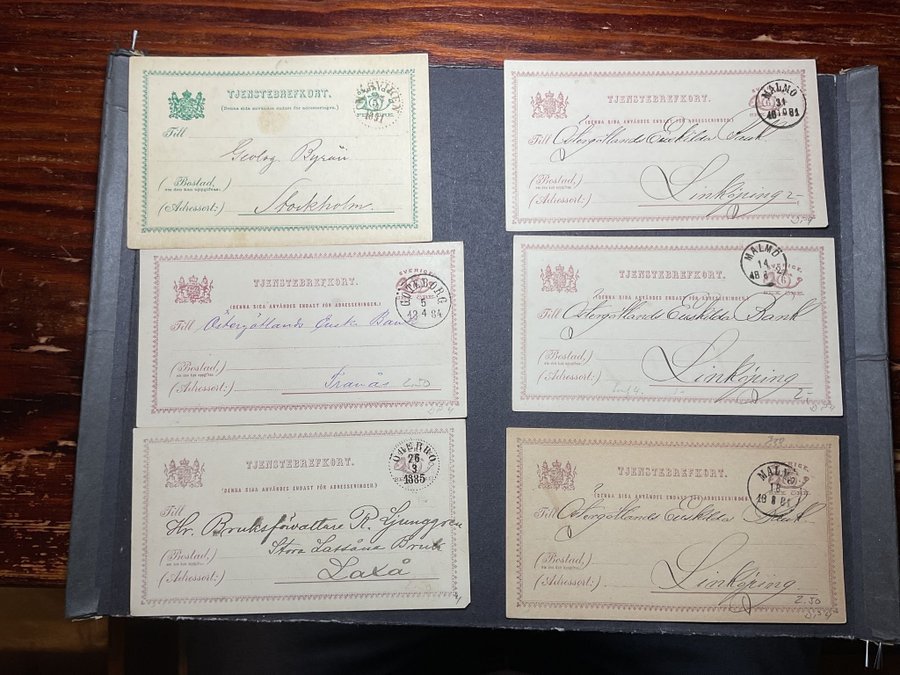 TJENSTEBREFKORT.
(Denna sida användes endast för adresseringen.)
5
Till
Geolog Byrån
(Bostad,
om den kan uppgifvas.)
(Adressort:) Stockholm.
TJENSTEBREFKORT.
SVERIGE.
GÖTEBORG
5
18 4 84
(DENNA SIDA ANVÄNDES ENDAST FÖR ADRESSERINGEN.)
Till Östergötlands Ensk. Bank
(Bostad,
om den kan uppgifvas.)
(Adressort:) Tranås 2.50
TJENSTEBREFKORT.
ÖREBRO
26
3
1885
(DENNA SIDA ANVÄNDES ENDAST FÖR ADRESSERINGEN.)
Till
Hr. Bruksförvaltare R. Ljunggren
Stora Lassåna Bruk
(Bostad,
om den kan uppgifvas.)
(Adressort:) Laxå
TJENSTEBREFKORT.
MALMÖ
31
18 10 81
(DENNA SIDA ANVÄNDES ENDAST FÖR ADRESSERINGEN.)
Till Östergötlands Enskilda Bank
(Bostad,
om den kan uppgifvas.)
(Adressort:) Linköping 2-
TJENSTEBREFKORT.
SVERIGE.
MALMÖ
14
6
(DENNA SIDA ANVÄNDES ENDAST FÖR ADRESSERINGEN.)
Till Östergötlands Enskilda Bank
(Bostad,
om den kan uppgifvas.)
(Adressort:) Linköping 2-
TJENSTEBREFKORT.
SVERIGE.
MALMÖ
18
18 8 81
(DENNA SIDA ANVÄNDES ENDAST FÖR ADRESSERINGEN.)
Till Östergötlands Enskilda Bank
(Bostad,
om den kan uppgifvas.)
(Adressort:) Linköping
2.50